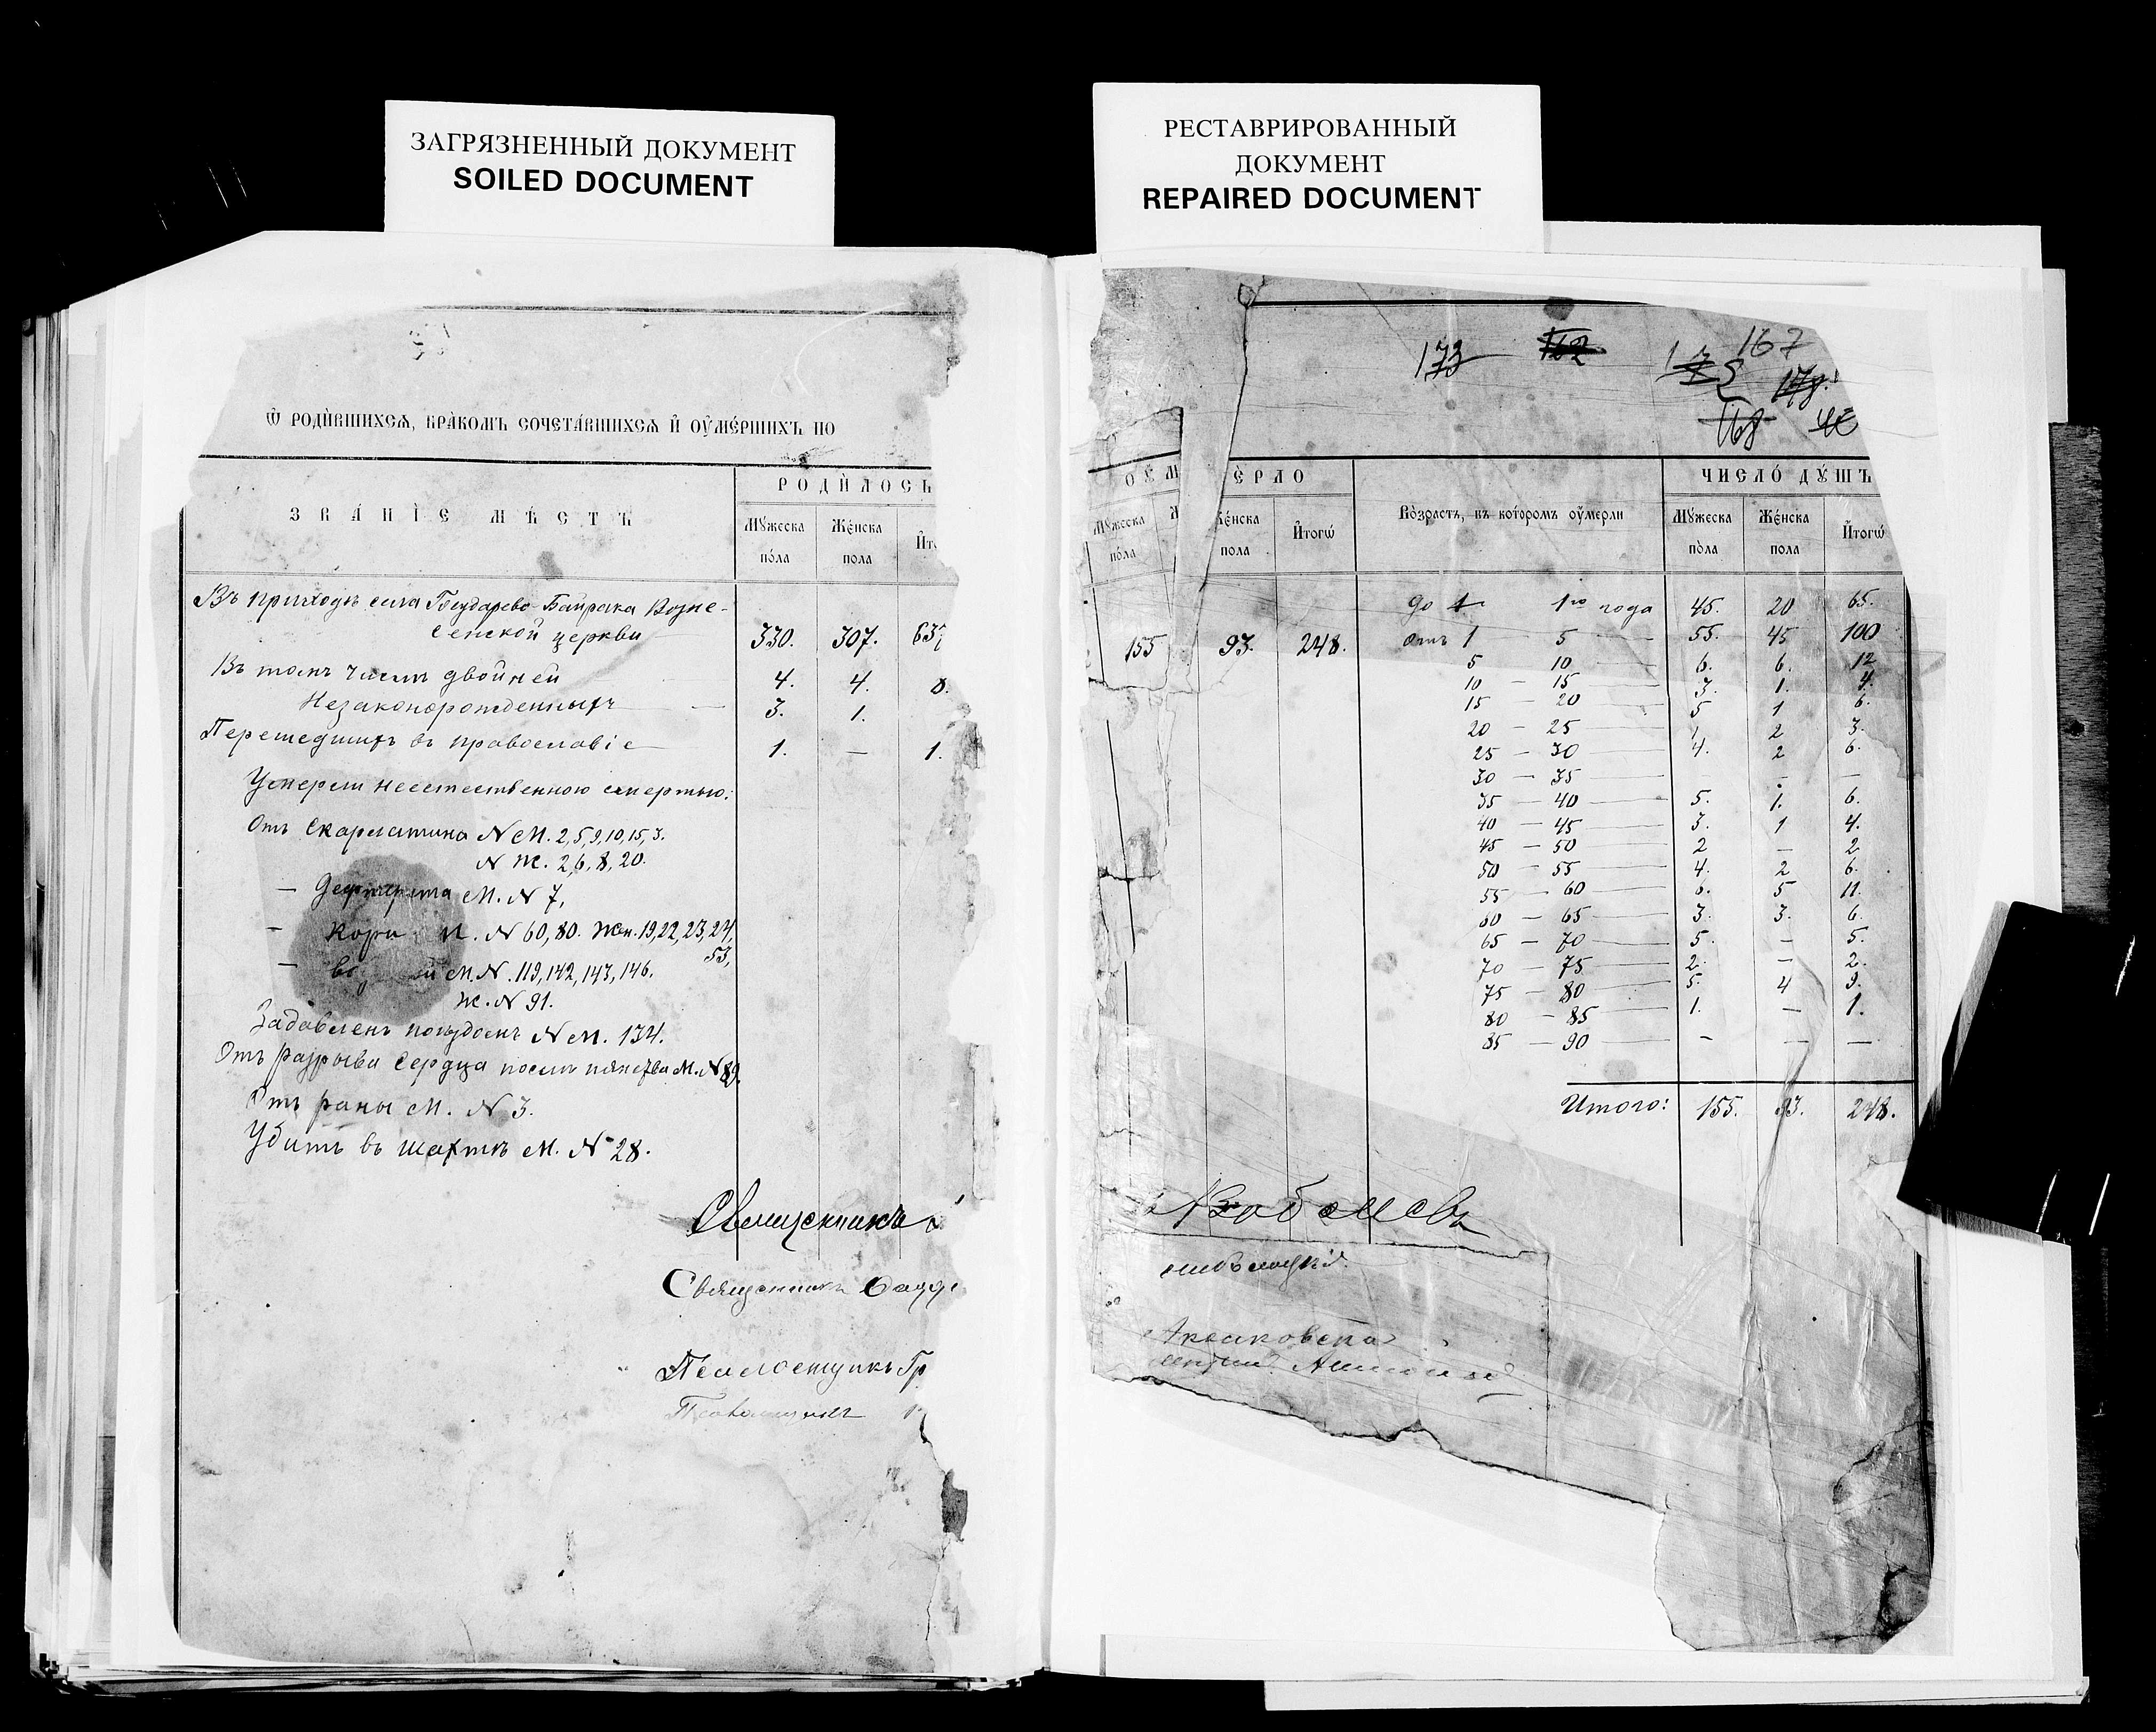 ЗАГРЯЗНЕННЫЙ ДОКУМЕНТ
SOILED DOCUMENT
РЕСТАВРИРОВАННЫЙ
ДОКУМЕНТ
REPAIRED DOCUMENT
Ѡ РОДИ́ВШИХСѦ, БРА́КОМЪ СОЧЕТА́ВШИХСѦ И҆ ОУ҆МЕ́РШИХЪ ПО
ЗВА́НІЕ МѢСТЪ
РОДИ́ЛОСЬ
Мꙋ́жеска по́ла
Же́нска пола
Въ приходѣ села Государево-Байрака Возне-
сенской церкви 330. 307. 637
Въ томъ числѣ двойней 4. 4. 8.
Незаконорожденныхъ 3. 1.
Перешедшихъ въ православіе 1. — 1.
Умерли неестественною смертью:
Отъ скарлатина N М. 2,5,9,10,15,3.
N Ж. 2,6,8,20.
— М. N 7,
— Кори М. N 60, 80. Жен. 19,22,23,24,
53,
— М. N. 119, 142, 143, 146.
Ж. N 91.
Задавленъ поѣздомъ N М. 134.
Отъ разрыва сердца послѣ пянства М. N 89.
Отъ раны М. N 3.
Убитъ въ шахтѣ М. N 28.
Священникъ
Священникъ Фадде
Псаломщикъ Гр
173 162 175 167
178.
168
ОУ҆МЕ́РЛО
Мꙋ́жеска по́ла
Же́нска пола
И҆тогѡ
Во́зрастъ, въ кото́ромъ оу҆мерли
ЧИСЛО́ ДꙊ́ШЪ
Мꙋ́жеска по́ла
Же́нска пола
И҆тогѡ
155 93. 248.
до 1го года 45. 20 65.
отъ 1 5 55. 45 100
5 10 6. 6. 12
10 — 15 3. 1. 4.
15 — 20 5 1 6.
20 — 25 1. 2 3.
25 — 30 4. 2 6.
30 — 35 — — —
35 — 40 5. 1. 6.
40 — 45 3. 1 4.
45 — 50 2 — 2
50 — 55 4. 2 6.
55 — 60 6. 5 11.
60 — 65 3. 3. 6.
65 — 70 5. — 5.
70 — 75 2. — 2.
75 — 80 5. 4 9.
80 — 85 1. — 1.
85 — 90 — — —
Итого: 155. 93. 248.